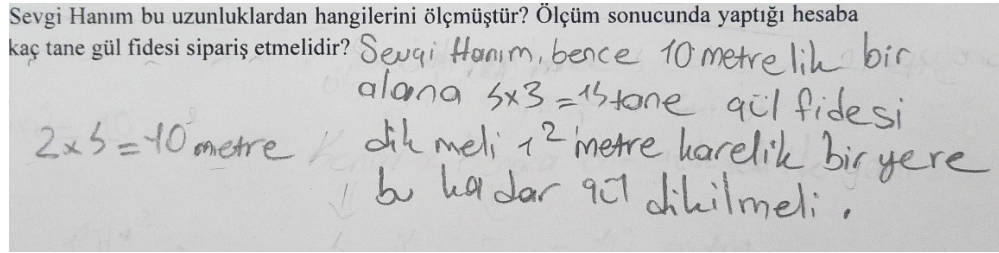 Sevgi Hanım bu uzunluklardan hangilerini ölçmüştür? Ölçüm sonucunda yaptığı hesaba
kaç tane gül fidesi sipariş etmelidir? Sevgi Hanım, bence 10 metrelik bir
alana 5x3=15 tane gül fidesi
2x5=10 metre dikmeli 1² metre karelik bir yere
bu kadar gül dikilmeli.